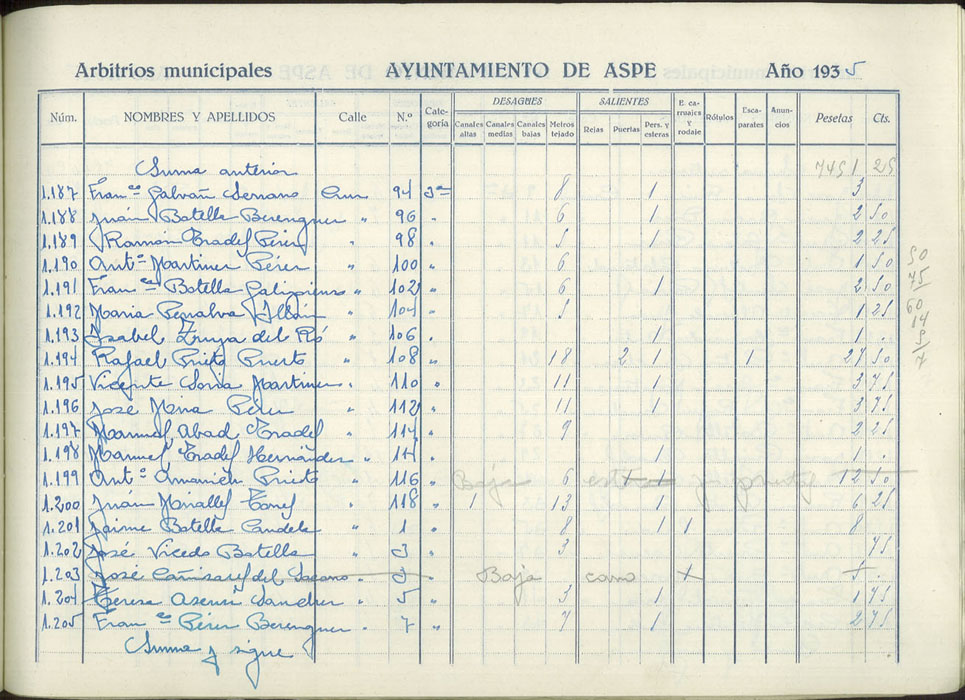 Arbitrios municipales AYUNTAMIENTO DE ASPE Año 1935
Núm. NOMBRES Y APELLIDOS Calle N.º Cate-goría DESAGÜES Canales altas Canales medias Canales bajas Metros tejado SALIENTES Rejas Puertas Pers. y esteras E. ca-rruajes y rodaje Rótulos Esca-parates Anun-cios Pesetas Cts.
Suma anterior 7451 25
1.187 Fran.co Galvañ Serrano 94 3ª 8 1 3
1.188 Juán Botella Berenguer " 96 " 6 1 2 50
1.189 Ramón Pérez " 98 " 5 1 2 25
1.190 Ant.º Martinez Pérez " 100 " 6 1 50
1.191 Fran.ca Botella " 102 " 6 1 2 50
1.192 Maria Penalva " 104 " 5 1 25
1.193 Isabel del Ró " 106 " 1 1 .
1.194 Rafael Prieto Puerto " 108 " 18 2 1 1 27 50
1.195 Vicente Soria Martinez " 110 " 11 1 3 75
1.196 José Mira Pérez " 112 " 11 1 3 75
1.197 Manuel Abad " 114 " 9 2 25
1.198 Manuel Hernández " 114 " 1 1 .
1.199 Ant.º Prieto " 116 " Baja 6 1 12 50
1.200 Juán Miralles " 118 " 1 13 1 6 25
1.201 Jaime Botella Candela " 1 " 8 1 1 8
1.202 José Vicedo Botella " 3 " 3 75
1.203 José Cañizares del 3 Baja carro 5 .
1.204 Teresa Asensi Sanchez " 5 " 3 1 1 75
1.205 Fran.co Pérez Berenguer " 7 " 7 1 2 75
Suma y sigue
50
75
60
14